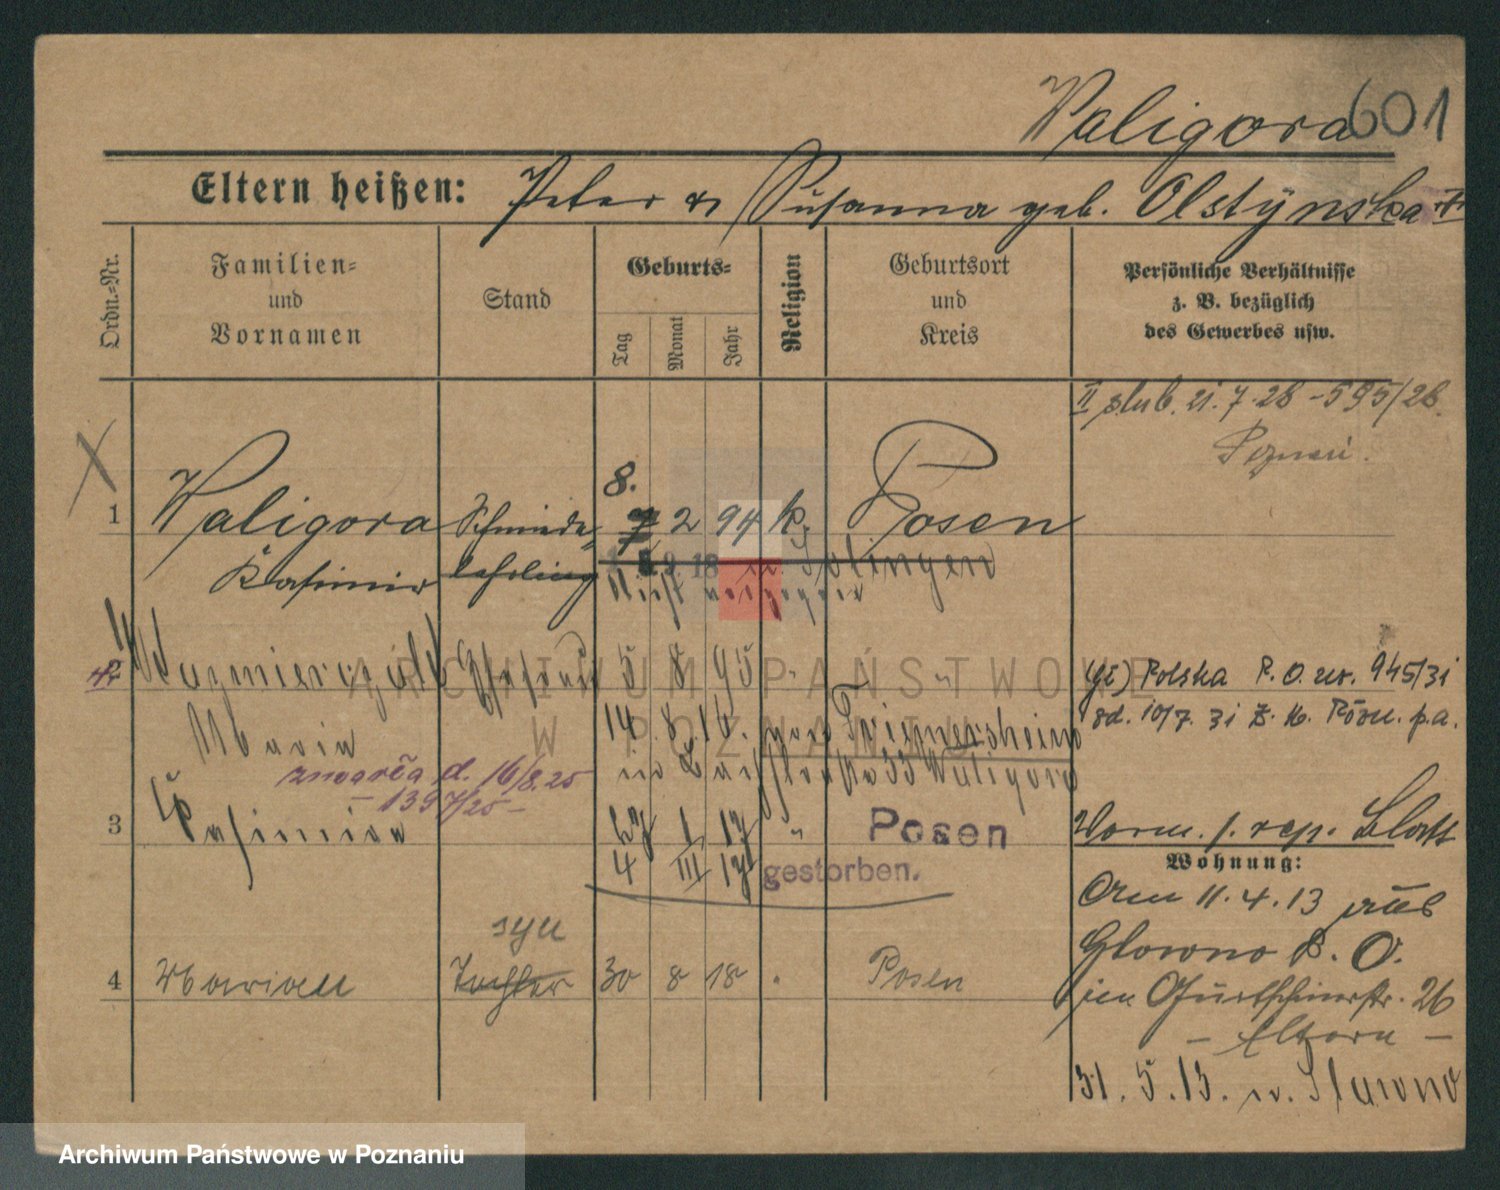 Waligora 601
Eltern heißen: Peter u Susanna geb. Olstynska
Ordn.-Nr.
Familien- und Vornamen
Stand
Geburts-
Tag
Monat
Jahr
Religion
Geburtsort und Kreis
Persönliche Verhältnisse z. B. bezüglich des Gewerbes usw.
II ślub. 21.7.28 - 595/28
Poznań.
8.
1 Waligora Schmiede- 7 2 94 k. Posen
Kasimir lehrling
18 n. Solingen
Nicht
Kazmierczak Ehefrau 5 8 95 "
Maria
14. 8. 16. Triemersheim
33 Waligora
zmarła d. 16/8.25
- 1397/25 -
Polska P.O. nr. 945/31
10/7. 31 p.a.
3 Kasimira 27 I 17 " Posen
4 III 17 gestorben.
Wohnung:
Am 11.4.13 aus
Glowno B. O.
26
- Eltern -
syn
4 Marian Tochter 30 8 18 Posen
31. 5. 13. n.
ARCHIWUM PAŃSTWOWE
W POZNANIU
Archiwum Państwowe w Poznaniu